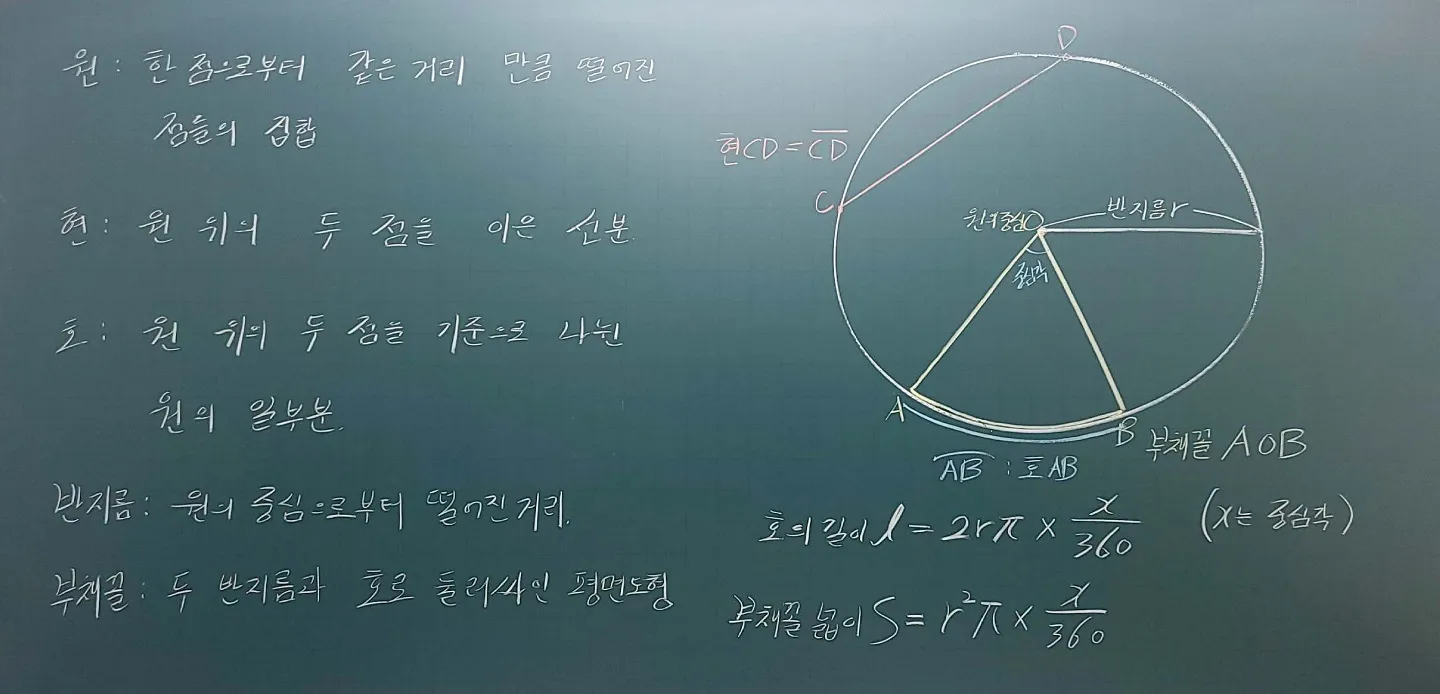 원 : 한 점으로부터 같은 거리 만큼 떨어진
점들의 집합
현 : 원 위의 두 점을 이은 선분.
호 : 원 위의 두 점을 기준으로 나뉜
원의 일부분.
반지름 : 원의 중심으로부터 떨어진 거리.
부채꼴 : 두 반지름과 호로 둘러싸인 평면도형
D
현CD = \overline{CD}
C
원의중심O
반지름r
중심각
A
B
부채꼴 AOB
\overline{AB} : 호AB
호의 길이 l = 2rπ × \frac{x}{360} (x는 중심각)
부채꼴 넓이 S = r²π × \frac{x}{360}